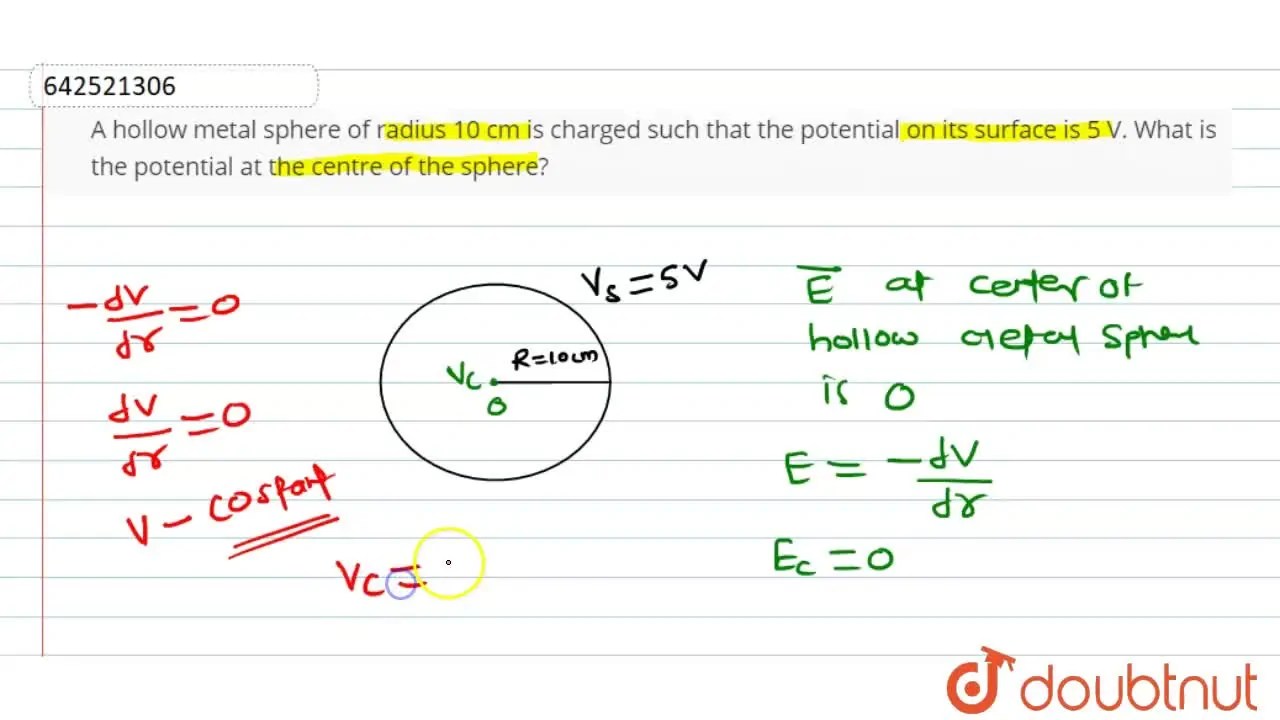 642521306
A hollow metal sphere of radius 10 cm is charged such that the potential on its surface is 5 V. What is
the potential at the centre of the sphere?
-dV/dr = 0
dV/dr = 0
V - costant
Vc =
Vs = 5V
R = 10cm
Vc
O
E at center of
hollow metal sphere
is 0
E = -dV/dr
Ec = 0
doubtnut